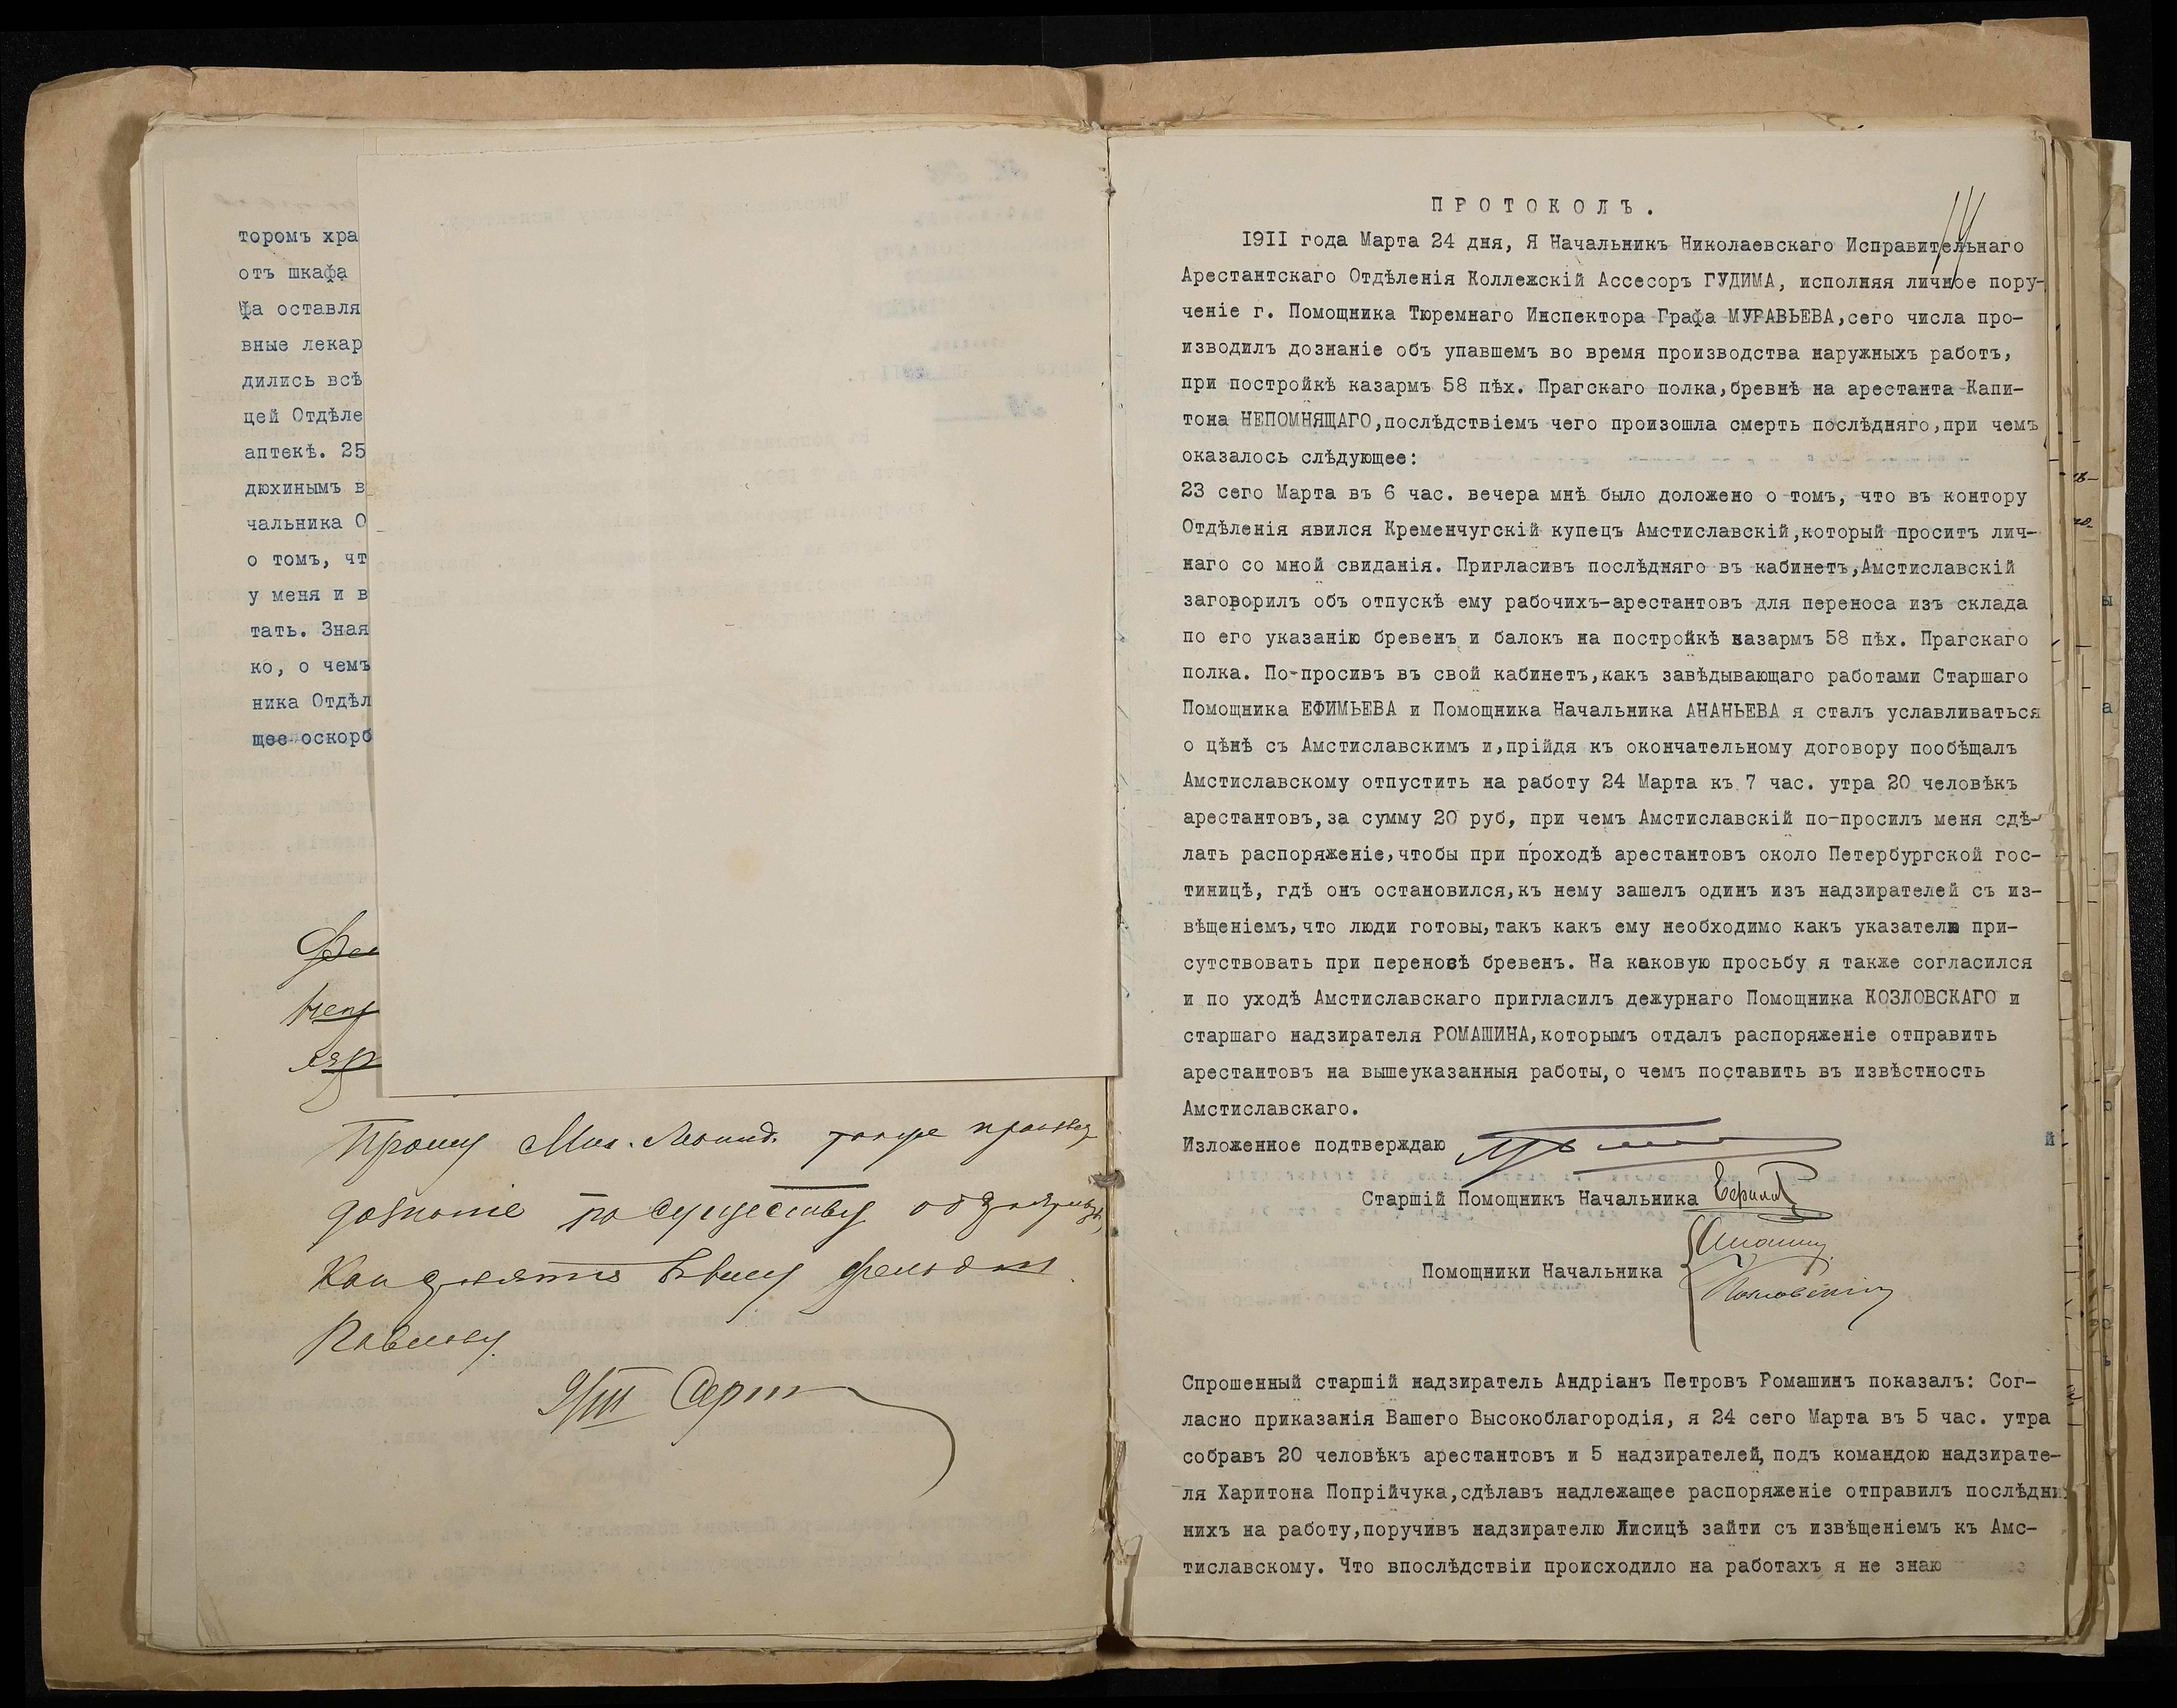 торомъ хра
отъ шкафа
фа оставля
вные лекар
дились всѣ
цей Отдѣле
аптекѣ. 25
дюхинымъ в
чальника О
о томъ, чт
у меня и в
тать. Зная
ко, о чемъ
ника Отдѣл
щее оскорб
Прошу
дознаніе по существу
Павлову
9/III
ПРОТОКОЛЪ.
1911 года Марта 24 дня, Я Начальникъ Николаевскаго Исправительнаго
Арестантскаго Отдѣленія Коллежскій Ассесоръ ГУДИМА, исполняя личное пору-
ченіе г. Помощника Тюремнаго Инспектора Графа МУРАВЬЕВА,сего числа про-
изводилъ дознаніе объ упавшемъ во время производства наружныхъ работъ,
при постройкѣ казармъ 58 пѣх. Прагскаго полка,бревнѣ на арестанта Капи-
тона НЕПОМНЯЩАГО,послѣдствіемъ чего произошла смерть послѣдняго,при чемъ
оказалось слѣдующее:
23 сего Марта въ 6 час. вечера мнѣ было доложено о томъ, что въ контору
Отдѣленія явился Кременчугскій купецъ Амстиславскій,который проситъ лич-
наго со мной свиданія. Пригласивъ послѣдняго въ кабинетъ,Амстиславскій
заговорилъ объ отпускѣ ему рабочихъ-арестантовъ для переноса изъ склада
по его указанію бревенъ и балокъ на постройкѣ казармъ 58 пѣх. Прагскаго
полка. По-просивъ въ свой кабинетъ,какъ завѣдывающаго работами Старшаго
Помощника ЕФИМЬЕВА и Помощника Начальника АНАНЬЕВА я сталъ уславливаться
о цѣнѣ съ Амстиславскимъ и,прійдя къ окончательному договору пообѣщалъ
Амстиславскому отпустить на работу 24 Марта къ 7 час. утра 20 человѣкъ
арестантовъ,за сумму 20 руб, при чемъ Амстиславскій по-просилъ меня сдѣ-
лать распоряженіе,чтобы при проходѣ арестантовъ около Петербургской гос-
тиницѣ, гдѣ онъ остановился,къ нему зашелъ одинъ изъ надзирателей съ из-
вѣщеніемъ,что люди готовы,такъ какъ ему необходимо какъ указателю при-
сутствовать при переновѣ бревенъ. На каковую просьбу я также согласился
и по уходѣ Амстиславскаго пригласилъ дежурнаго Помощника КОЗЛОВСКАГО и
старшаго надзирателя РОМАШИНА,которымъ отдалъ распоряженіе отправить
арестантовъ на вышеуказанныя работы,о чемъ поставить въ извѣстность
Амстиславскаго.
Изложенное подтверждаю
Старшій Помощникъ Начальника
Помощники Начальника
Спрошенный старшій надзиратель Андріанъ Петровъ Ромашинъ показалъ: Сог-
ласно приказанія Вашего Высокоблагородія, я 24 сего Марта въ 5 час. утра
собравъ 20 человѣкъ арестантовъ и 5 надзирателей, подъ командою надзирате-
ля Харитона Попрійчука,сдѣлавъ надлежащее распоряженіе отправилъ послѣдни
нихъ на работу,поручивъ надзирателю Лисицѣ зайти съ извѣщеніемъ къ Амс-
тиславскому. Что впослѣдствіи происходило на работахъ я не знаю